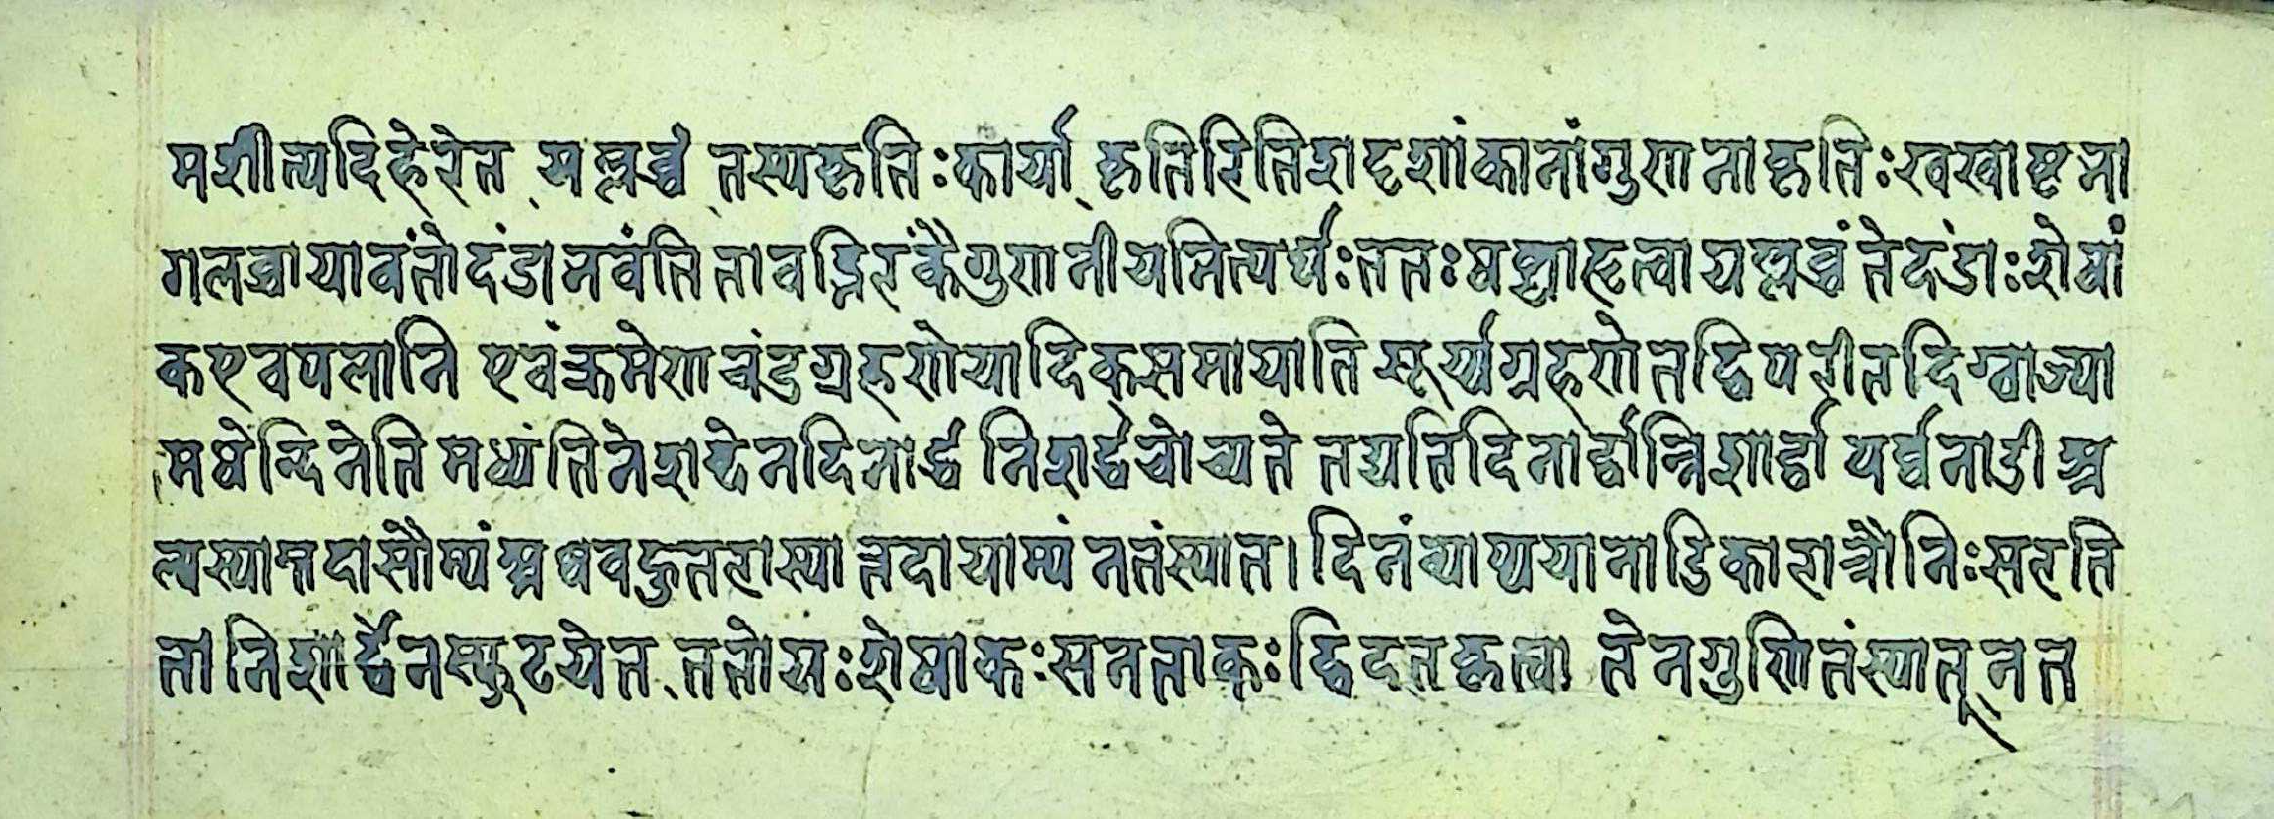 मशीत्यदिर्हरेत् यल्लब्धं तस्यकृतिःकार्या कृतिरितिशदृशांकानांगुणनाकृतिःखखाष्टना
गलब्धायावंतोदंडानवंतितावद्भिरंकैर्गुणनीयमित्यर्थःततःषष्ट्याहृत्वायल्लब्धंतेदंडाःशेषां
कएवपलानि एवंक्रमेणचंद्रग्रहणेयादिक्समायाति सूर्य्यग्रहणेतद्विपरीतदिग्वाज्या
मधेन्दिनेति मध्यंतिनेशब्देनदिनार्द्धं निशार्द्धंचोच्यते तद्यतिदिनार्द्धान्निशार्द्धा पर्व्वनाडीस्व
ल्पस्यात्तदासौम्यंअथवदुतरास्या त्तदायाम्यं नतंस्यात। दिनंव्याप्ययानाडिकारात्रौनिःसरति
तानिशार्द्धेनस्फुटयेत् ततोयःशेषाकःसनताकःद्विदतकृत्वा तेनगुणितंस्यात्नत